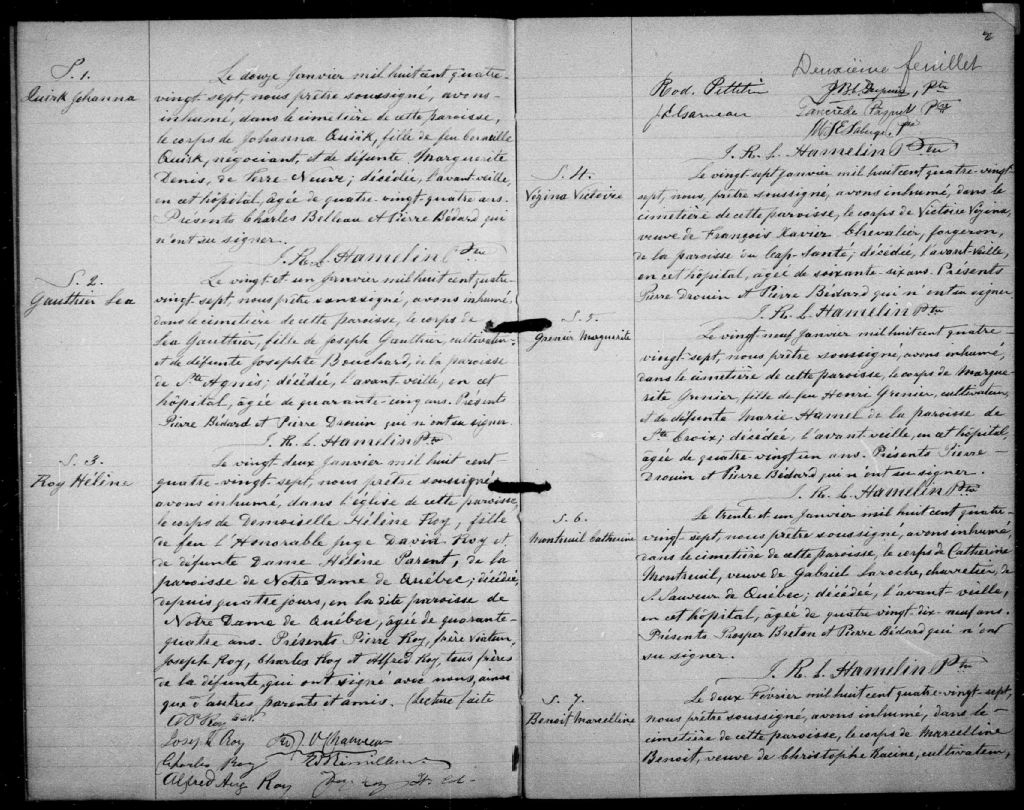 S. 1.
Quirk Johanna
Le douze Janvier mil huit cent quatre-
vingt sept, nous prêtre soussigné, avons
inhumé, dans le cimetière de cette paroisse,
le corps de Johanna Quirk, fille de feu Corneille
Quirk, négociant, et de défunte Marguerite
Denis, de Terre-Neuve; décédée, l'avant-veille,
en cet hôpital, âgée de quatre-vingt-quatre ans.
Présents Charles Bilteau et Pierre Bédard qui
n'ont su signer.
J. R. L. Hamelin Ptre
S. 2.
Gauthier Lea
Le vingt et un Janvier mil huit cent quatre-
vingt-sept, nous prêtre soussigné, avons inhumé,
dans le cimetière de cette paroisse, le corps de
Lea Gauthier, fille de Joseph Gauthier, cultivateur
et de défunte Josephte Bouchard, de la paroisse
de Ste Agnès; décédée, l'avant-veille, en cet
hôpital, âgée de quarante-cinq ans. Présents
Pierre Bédard et Pierre Drouin qui n'ont su signer.
J. R. L. Hamelin Ptre
S. 3.
Roy Hélène
Le vingt deux Janvier mil huit cent
quatre-vingt-sept, nous prêtre soussigné
avons inhumé, dans l'église de cette paroisse,
le corps de Demoiselle Hélène Roy, fille
de feu l'Honorable juge David Roy et
de défunte Dame Hélène Parent, de la
paroisse de Notre Dame de Québec; décédée,
depuis quatre jours, en la dite paroisse de
Notre Dame de Québec, âgée de quarante-
quatre ans. Présents Pierre Roy, frère Viateur,
Joseph Roy, Charles Roy et Alfred Roy, tous frères
de la défunte, qui ont signé avec nous, ainsi
que d'autres parents et amis. (Lecture faite
Roy
Joseph Roy
Chauveau
Charles Roy
Alfred Aug Roy
2
Deuxième feuillet
Rod. Pelletier
Ptre
J E Garneau
Tancrède Paquet Ptre
J. R. L. Hamelin Ptre
S. 4.
Vézina Victoire
Le vingt sept Janvier mil huit cent quatre-vingt-
sept, nous, prêtre soussigné, avons inhumé, dans le
cimetière de cette paroisse, le corps de Victoire Vézina,
veuve de François Xavier Chevalier, forgeron,
de la paroisse du Cap-Santé; décédée, l'avant-veille,
en cet hôpital, âgée de soixante-six ans. Présents
Pierre Drouin et Pierre Bédard qui n'ont su signer
J. R. L. Hamelin Ptre
S. 5.
Grenier Marguerite
Le vingt-neuf Janvier mil huit cent quatre-
vingt-sept, nous prêtre soussigné, avons inhumé,
dans le cimetière de cette paroisse, le corps de Margue-
rite Grenier, fille de feu Henri Grenier, cultivateur,
et de défunte Marie Hamel de la paroisse de
Ste Croix; décédée, l'avant-veille, en cet hôpital,
âgée de quatre-vingt un ans. Présents Pierre-
Drouin et Pierre Bédard qui n'ont su signer.
J. R. L. Hamelin Ptre
S. 6.
Montreuil Catherine
Le trente et un Janvier mil huit cent quatre-
vingt-sept, nous prêtre soussigné, avons inhumé,
dans le cimetière de cette paroisse, le corps de Catherine
Montreuil, veuve de Gabriel Laroche, charretier, de
St Sauveur de Québec; décédée, l'avant-veille,
en cet hôpital, âgée de quatre vingt dix-neuf ans.
Présents Prosper Breton et Pierre Bédard qui n'ont
su signer.
J. R. L. Hamelin Ptre
S. 7.
Benoit Marcelline
Le deux Février mil huit cent quatre-vingt-sept,
nous, prêtre soussigné, avons inhumé, dans le
cimetière de cette paroisse, le corps de Marcelline
Benoit, veuve de Christophe Racine, cultivateur,